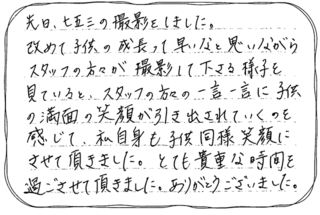 先日、七五三の撮影をしました。
改めて子供の成長って早いなと思いながら
スタッフの方々が撮影して下さる様子を
見ていると、スタッフの方の一言一言に子供
の満面の笑顔が引き出されていくのを
感じて、私自身も子供同様笑顔に
させて頂きました。とても貴重な時間を
過ごさせて頂きました。ありがとうございました。